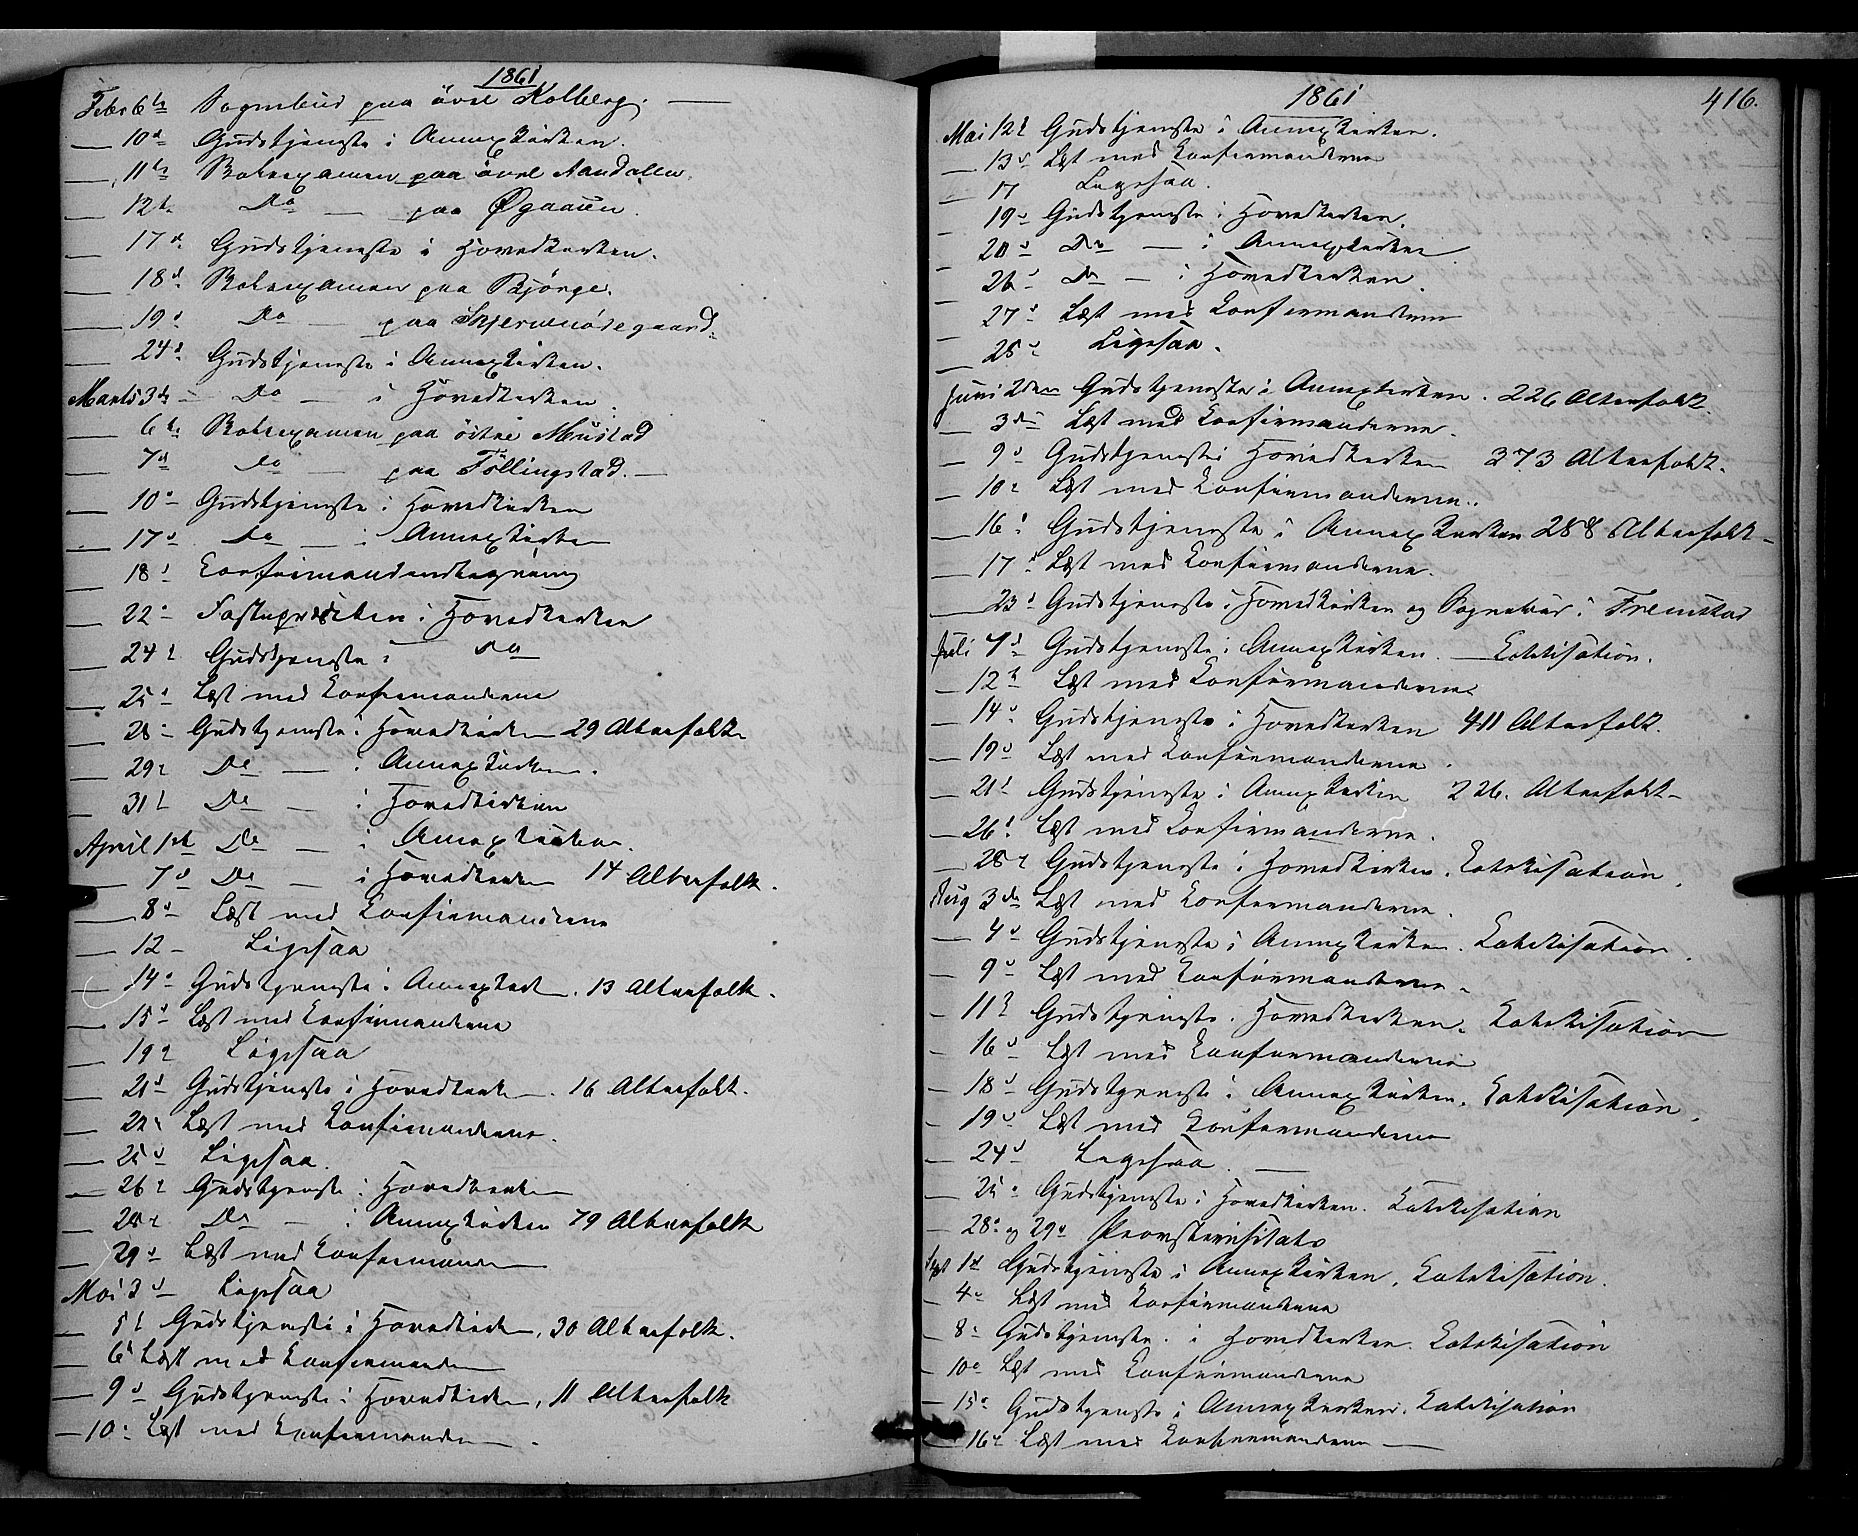 1861
Febr 6te Sognebud paa övre Kolberg.
— 10de Gudstjeneste i Annexkirken.
— 11te Rodeexamen paa övre Aandallen.
— 12te Do — paa Øgaarden.
— 17de Gudstjeneste i Hovedkirken.
— 18de Rodeexamen paa Bjørge.
— 19de Do — paa Skjermenödegaard.
— 24de Gudstjeneste i Annexkirken.
Marts 3de — Do — i Hovedkirken
— 6te Rodeexamen paa östre Mustad
— 7de Do — paa Föllingstad. —
— 10de Gudstjeneste i Hovedkirken
— 17de Do — i Annexkirken
— 18de
— 22de Fasteprædiken i Hovedkirken
— 24de Gudstjeneste i Do
— 25de Læst med Konfirmanderne
— 28de Gudstjeneste i Hovedkirken 29 Alterfolk
— 29de Do — i Annexkirken.
— 31de Do — i Hovedkirken
April 1ste Do — i Annexkirken.
— 7de Do — i Hovedkirken 14 Alterfolk.
— 8de Læst med Konfirmanderne
— 12 — Ligesaa
— 14de Gudstjeneste i Annexkirken. 13 Alterfolk.
— 15de Læst med Konfirmanderne
— 19de Ligesaa
— 21de Gudstjeneste i Hovedkirken. 16 Alterfolk.
— 22de Læst med Konfirmanderne.
— 25de Ligesaa.
— 26de Gudstjeneste i Hovedkirken
— 28de Do — i Annexkirken 79 Alterfolk
— 29de Læst med Konfirmanderne
Mai 3de — Ligesaa
— 5te Gudstjeneste i Hovedkirken, 30 Alterfolk.
— 6te Læst med Konfirmanderne
— 9de Gudstjeneste i Hovedkirken, 11 Alterfolk
— 10de Læst med Konfirmanderne.
1861
416.
Mai 12te Gudstjeneste i Annexkirken.
— 13de Læst med Konfirmanderne
— 17 Ligesaa.
— 19de Gudstjeneste i Hovedkirken.
— 20de Do — i Annexkirken
— 26de Do — i Hovedkirken.
— 27de Læst med Konfirmanderne
— 28de Ligesaa.
Juni 2den Gudstjeneste i Annexkirken. 226 Alterfolk.
— 3die Læst med Konfirmanderne.
— 9de Gudstjeneste i Hovedkirken 373 Alterfolk.
— 10de Læst med Konfirmanderne.
— 16de Gudstjeneste i Annexkirken 288 Alterfolk —
— 17de Læst med Konfirmanderne.
— 23de Gudstjeneste i Hovedkirken og Sognebud i Fremstad
Juli 7de Gudstjeneste i Annexkirken. — Katekisation.
— 12te Læst med Konfirmanderne
— 14de Gudstjeneste i Hovedkirken 411 Alterfolk.
— 19de Læst med Konfirmanderne.
— 21de Gudstjeneste i Annexkirken 226. Alterfolk —
— 26de Læst med Konfirmanderne.
— 28de Gudstjeneste i Hovedkirken. Katekisation.
Aug 3die Læst med Konfirmanderne.
— 4de Gudstjeneste i Annexkirken. Katekisation.
— 9de Læst med Konfirmanderne.
— 11te Gudstjeneste i Hovedkirken. Katekisation
— 16de Læst med Konfirmanderne
— 18de Gudstjeneste i Annexkirken. Katekisation.
— 19de Læst med Konfirmanderne
— 24de Ligesaa. —
— 25de Gudstjeneste i Hovedkirken. Katekisation
— 28de og 29de Provstevisitats
Sept 1ste Gudstjeneste i Annexkirken. Katekisation.
— 4de Læst med Konfirmanderne
— 8de Gudstjeneste i Hovedkirken. Katekisation
— 10de Læst med Konfirmanderne
— 15de Gudstjeneste i Annexkirken. Katekisation
— 16de Læst med Konfirmanderne —